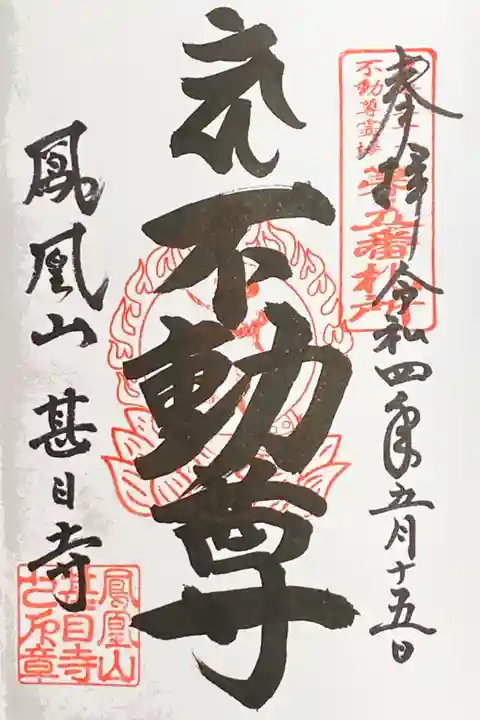 奉拝 令和四年五月十五日
不動尊霊場
第五番札所
不動尊
鳳凰山 甚目寺
鳳凰山
甚目寺